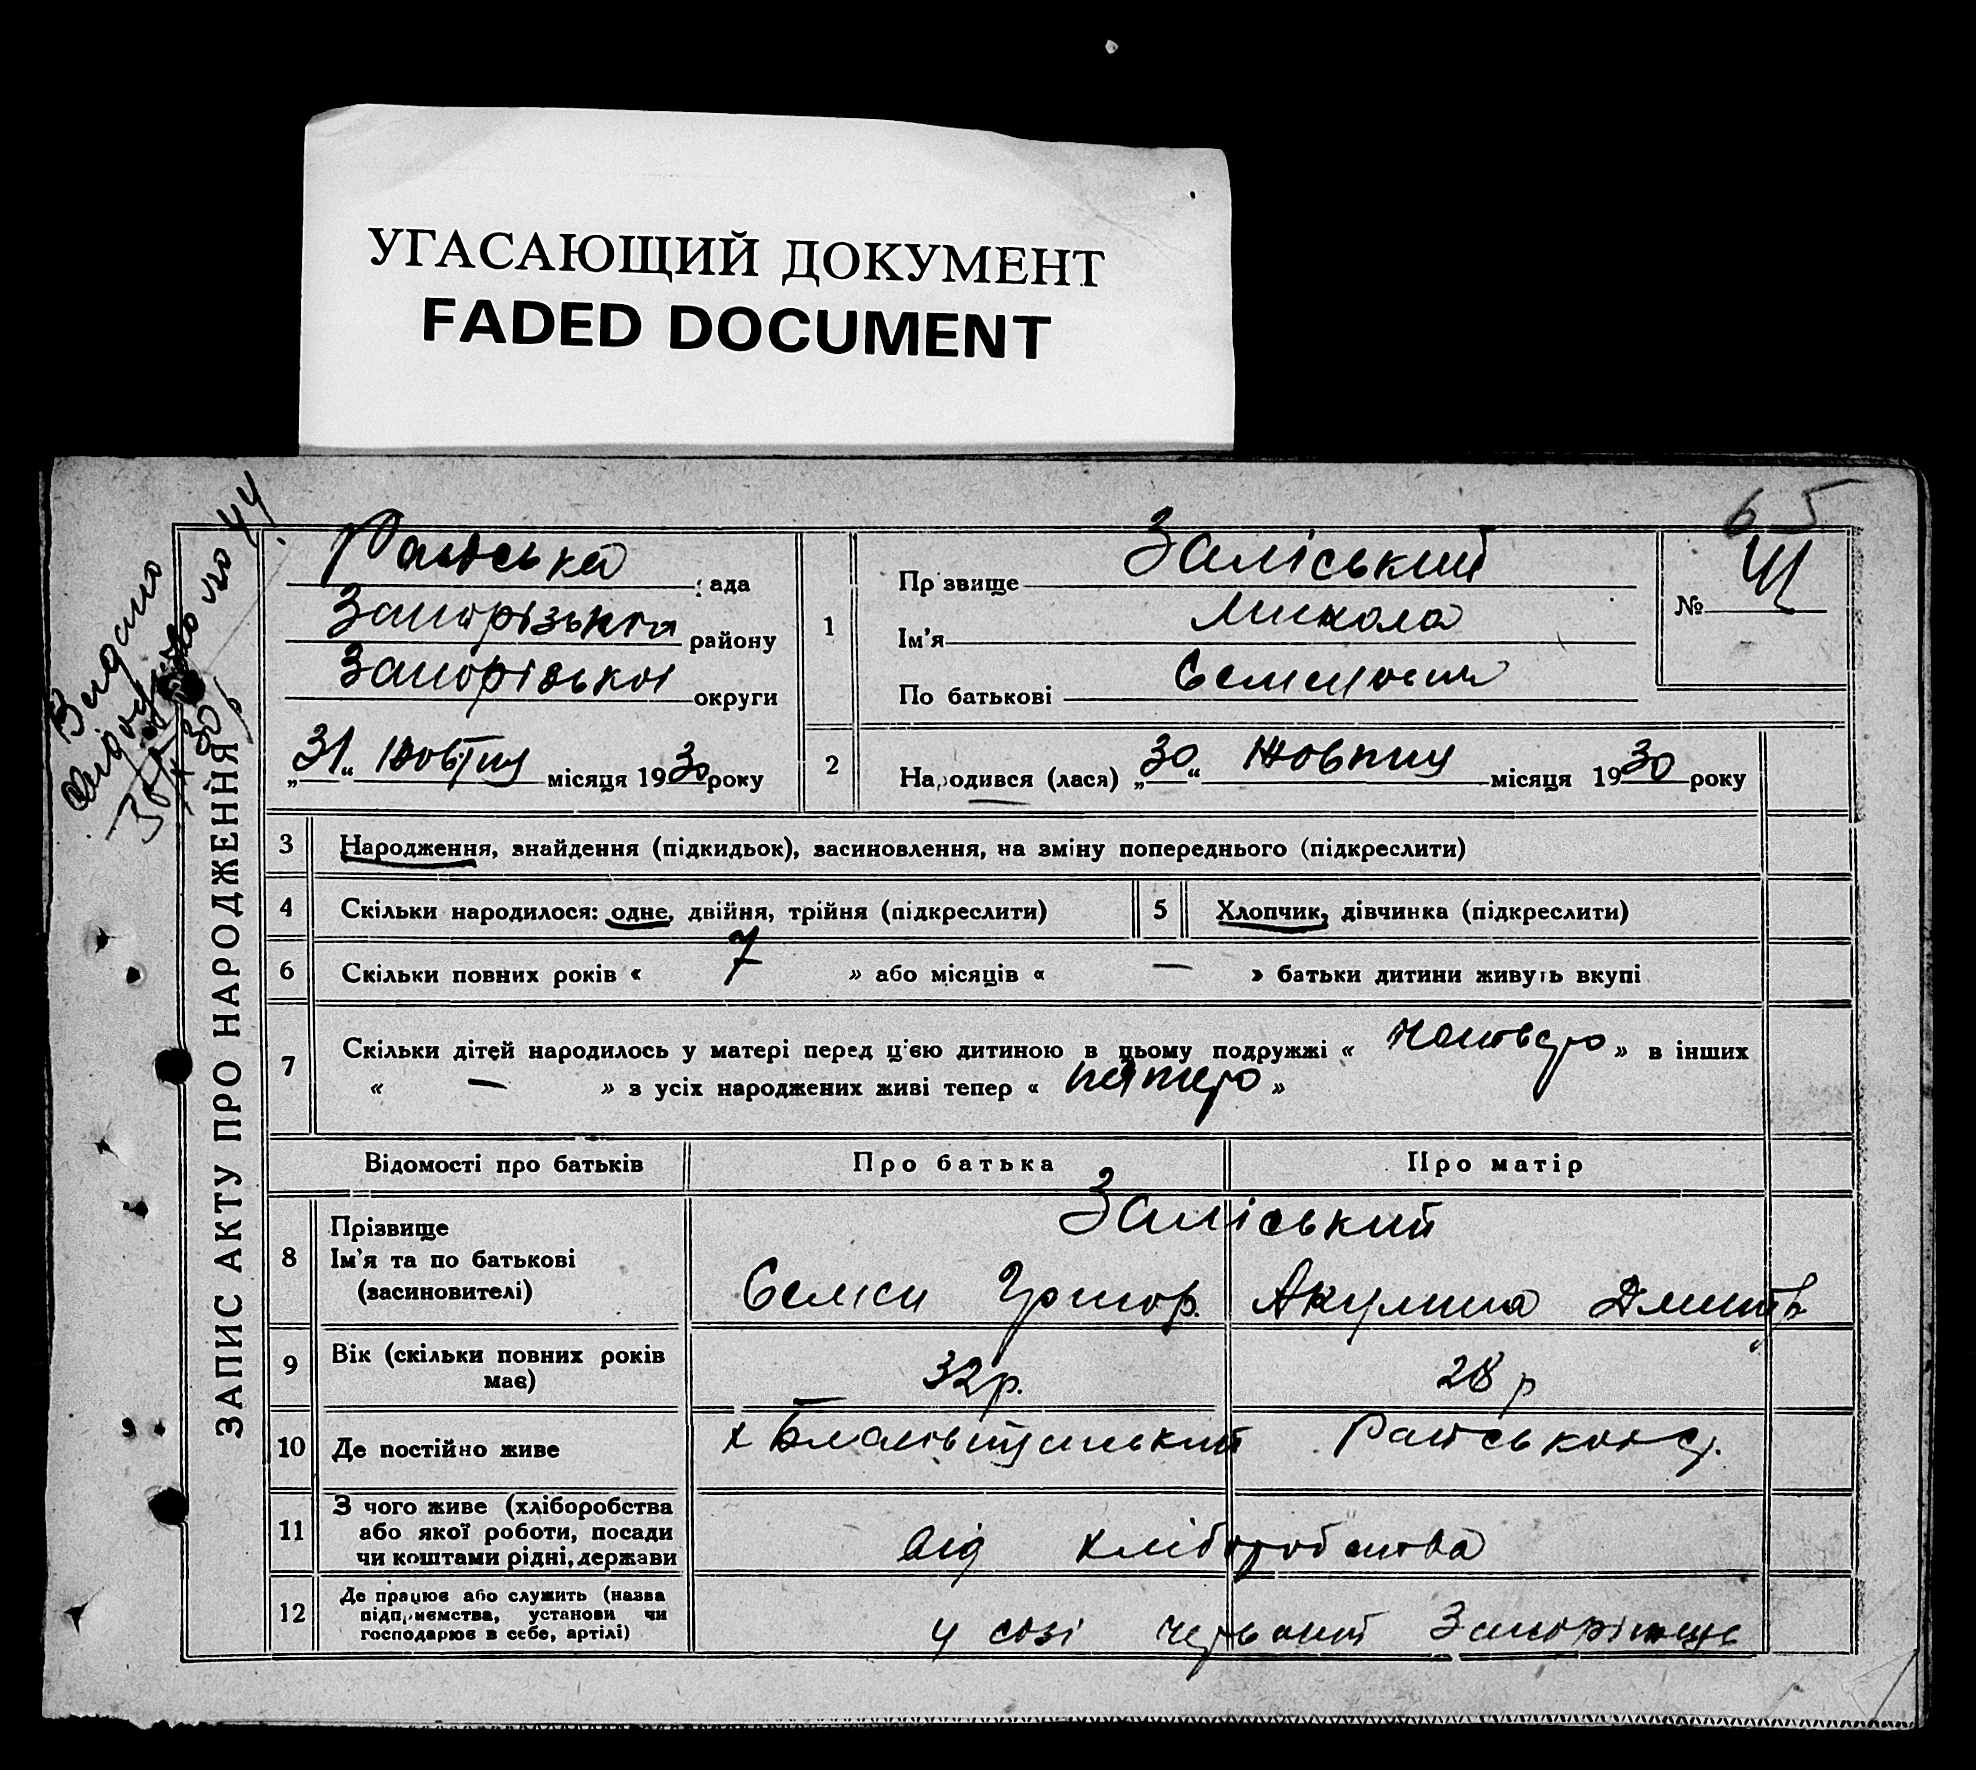 УГАСАЮЩИЙ ДОКУМЕНТ
FADED DOCUMENT
65
ЗАПИС АКТУ ПРО НАРОДЖЕННЯ
Видано
Раїська рада
Запорізького району
Запорізької округи
„31“ жовтня місяця 1930 року
1
Прізвище Заліський
Ім'я Микола
По батькові Семенович
№
2
Народився (лася) „30“ жовтня місяця 1930 року
3 Народження, знайдення (підкидьок), засиновлення, на зміну попереднього (підкреслити)
4 Скільки народилося: одне, двійня, трійня (підкреслити)
5 Хлопчик, дівчинка (підкреслити)
6 Скільки повних років « 7 » або місяців « — » батьки дитини живуть вкупі
7 Скільки дітей народилось у матері перед ц'єю дитиною в цьому подружжі « четверо » в інших
« — » з усіх народжених живі тепер « пятеро »
Відомості про батьків Про батька Про матір
8 Прізвище Заліський
Ім'я та по батькові Семен Григор. Акулина Дмитр
(засиновителі)
9 Вік (скільки повних років 32 р. 28 р
має)
10 Де постійно живе х Раїської
11 З чого живе (хліборобства
або якої роботи, посади
чи коштами рідні, держави від хліборобства
12 Де працює або служить (назва
підприємства, установи чи
господарює в себе, артілі) у созі червоний Запоріжець